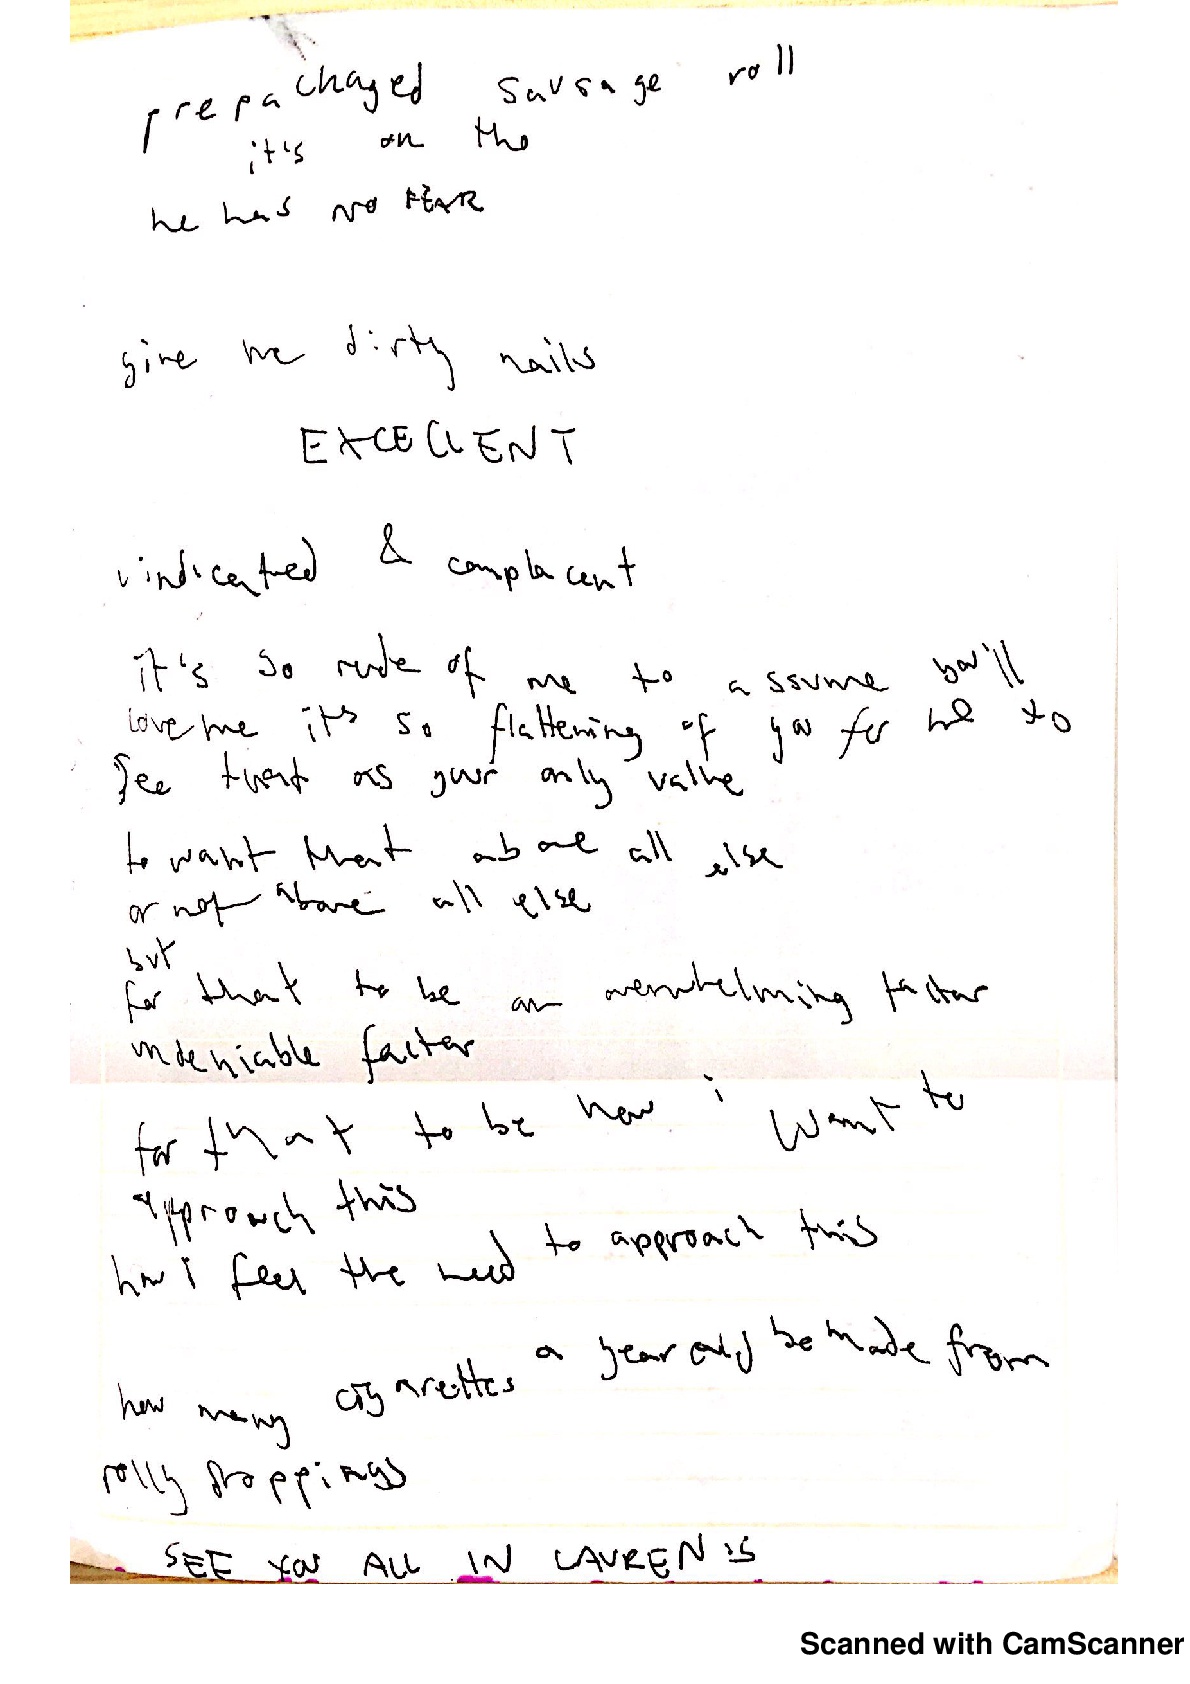 prepachaged sausage roll
it's on the
he has NO FEAR
give me dirty nails
EXCELLENT
vindicated & complacent
it's so rude of me to assume you'll
love me it's so flattening of you for me to
see that as your only value
to want that above all else
or not above all else
but
for that to be an overwhelming factor
undeniable factor
for that to be how i want to
approach this
how I feel the need to approach this
how many cigarettes a year could be made from
rolly droppings
SEE YOU ALL IN LAUREN'S
Scanned with CamScanner